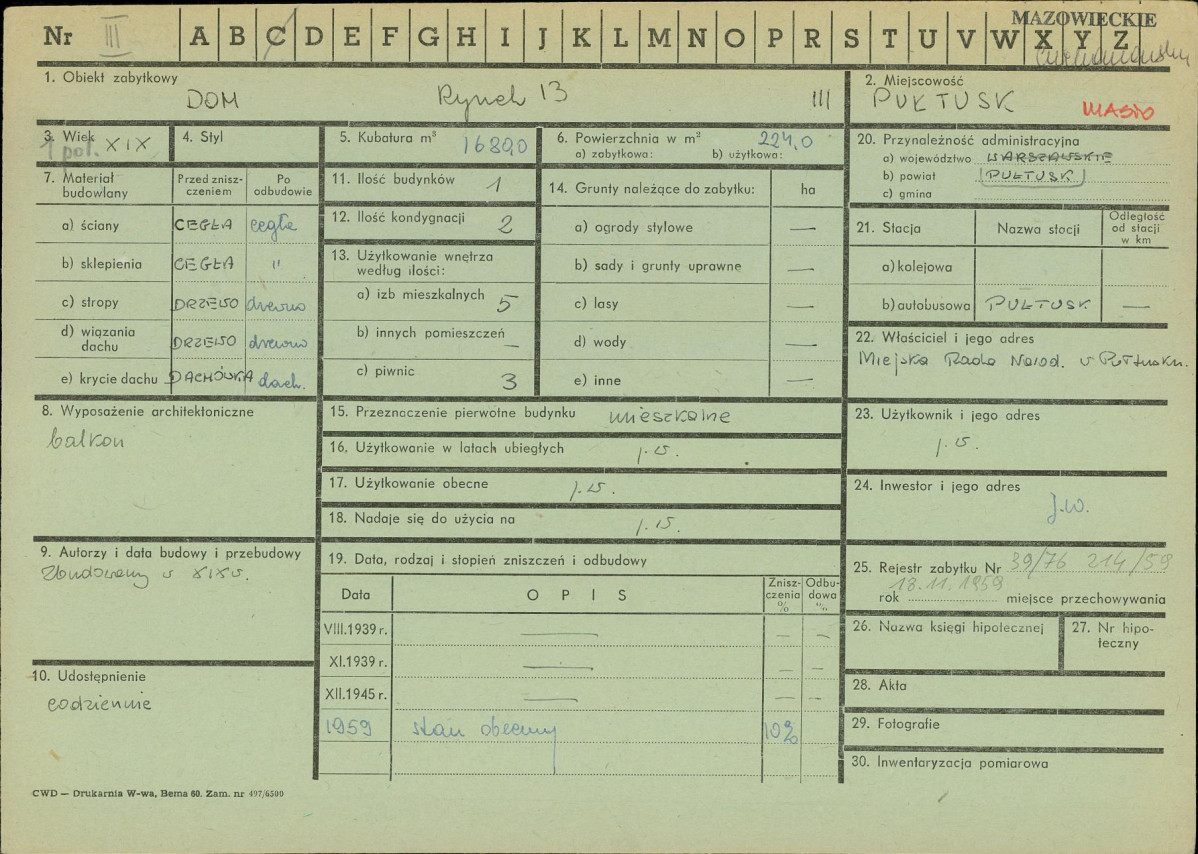 Nr III A B C D E F G H I J K L M N O P R S T U V W X Y Z
MAZOWIECKIE
1. Obiekt zabytkowy
DOM Rynek 13 III
2. Miejscowość
PUŁTUSK MIASTO
3. Wiek
1 poł. XIX
4. Styl
5. Kubatura m³ 1680,0
6. Powierzchnia w m² 224,0
a) zabytkowa: b) użytkowa:
7. Materiał budowlany
Przed znisz-
czeniem
Po
odbudowie
a) ściany CEGŁA cegła
b) sklepienia CEGŁA "
c) stropy DRZEWO drewno
d) wiązania
dachu DRZEWO drewno
e) krycie dachu DACHÓWKA dach.
8. Wyposażenie architektoniczne
balkon
9. Autorzy i data budowy i przebudowy
Zbudowany w XIX w.
10. Udostępnienie
codziennie
11. Ilość budynków 1
12. Ilość kondygnacji 2
13. Użytkowanie wnętrza
według ilości:
a) izb mieszkalnych 5
b) innych pomieszczeń —
c) piwnic 3
14. Grunty należące do zabytku: ha
a) ogrody stylowe —
b) sady i grunty uprawne —
c) lasy —
d) wody —
e) inne —
15. Przeznaczenie pierwotne budynku mieszkalne
16. Użytkowanie w latach ubiegłych j.w.
17. Użytkowanie obecne j.w.
18. Nadaje się do użycia na j.w.
19. Data, rodzaj i stopień zniszczeń i odbudowy
Data OPIS Znisz-
czenia
%
Odbu-
dowa
%
VIII.1939 r. — — —
XI.1939 r. — — —
XII.1945 r. — — —
1959 stan obecny 10%
20. Przynależność administracyjna
a) województwo WARSZAWSKIE
b) powiat PUŁTUSK
c) gmina
21. Stacja Nazwa stacji Odległość
od stacji
w km
a) kolejowa
b) autobusowa PUŁTUSK —
22. Właściciel i jego adres
Miejska Rada Narod. w Pułtusku.
23. Użytkownik i jego adres
j.w.
24. Inwestor i jego adres
j.w.
25. Rejestr zabytku Nr 39/76 214/59
13.11.1959
rok miejsce przechowywania
26. Nazwa księgi hipotecznej
27. Nr hipo-
teczny
28. Akta
29. Fotografie
30. Inwentaryzacja pomiarowa
CWD — Drukarnia W-wa, Bema 60. Zam. nr 497/6500